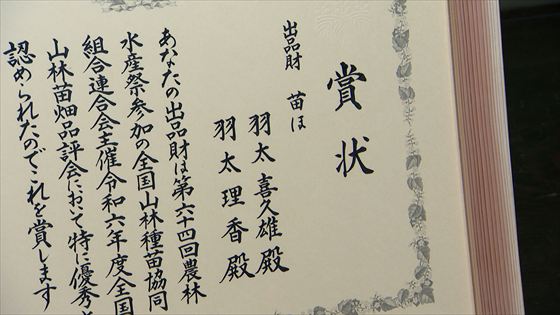 賞状
出品財 苗ほ
羽太喜久雄殿
羽太理香殿
あなたの出品財は第六十四回農林
水産祭参加の全国山林種苗協同
組合連合会主催令和六年度全国
山林苗畑品評会において特に優秀と
認められたのでこれを賞します